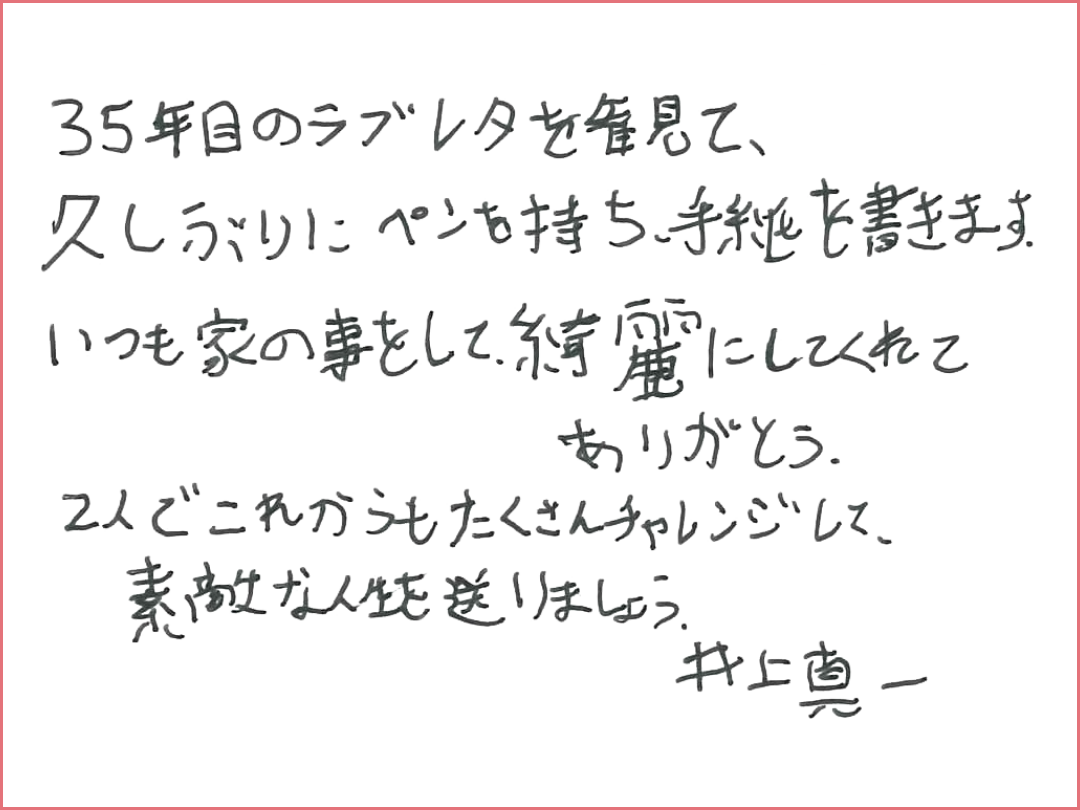 35年目のラブレタを観て、
久しぶりにペンを持ち、手紙を書きます.
いつも家の事をして、綺麗にしてくれて
ありがとう.
2人でこれからもたくさんチャレンジして、
素敵な人生を送りましょう.
井上真一